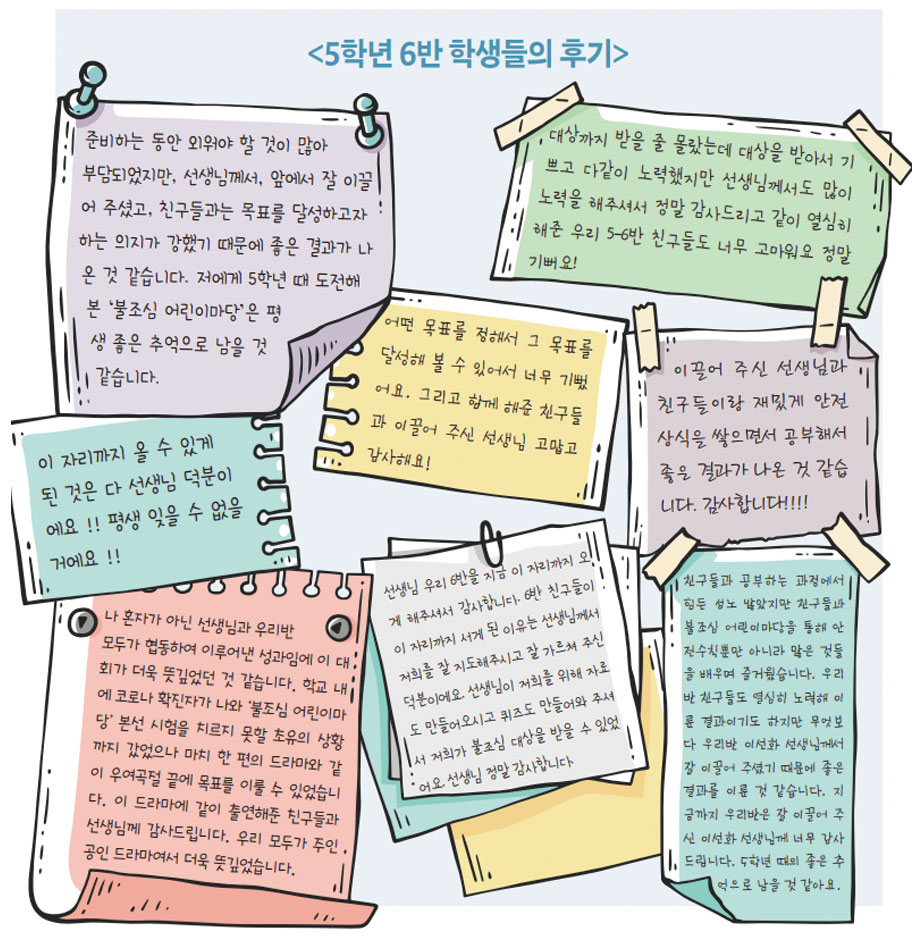 <5학년 6반 학생들의 후기>
준비하는 동안 외워야 할 것이 많아
부담되었지만, 선생님께서, 앞에서 잘 이끌
어 주셨고, 친구들과는 목표를 달성하고자
하는 의지가 강했기 때문에 좋은 결과가 나
온 것 같습니다. 저에게 5학년 때 도전해
본 '불조심 어린이마당'은 평
생 좋은 추억으로 남을 것
같습니다.
대상까지 받을 줄 몰랐는데 대상을 받아서 기
쁘고 다같이 노력했지만 선생님께서도 많이
노력을 해주셔서 정말 감사드리고 같이 열심히
해준 우리 5-6반 친구들도 너무 고마워요 정말
기뻐요!
어떤 목표를 정해서 그 목표를
달성해 볼 수 있어서 너무 기뻤
어요. 그리고 함께 해준 친구들
과 이끌어 주신 선생님 고맙고
감사해요!
이끌어 주신 선생님과
친구들이랑 재밌게 안전
상식을 쌓으면서 공부해서
좋은 결과가 나온 것 같습
니다. 감사합니다!!!!
이 자리까지 올 수 있게
된 것은 다 선생님 덕분이
에요 !! 평생 잊을 수 없을
거에요 !!
나 혼자가 아닌 선생님과 우리반
모두가 협동하여 이루어낸 성과임에 이 대
회가 더욱 뜻깊었던 것 같습니다. 학교 내
에 코로나 확진자가 나와 '불조심 어린이마
당' 본선 시험을 치르지 못할 초유의 상황
까지 갔었으나 마치 한 편의 드라마와 같
이 우여곡절 끝에 목표를 이룰 수 있었습니
다. 이 드라마에 같이 출연해준 친구들과
선생님께 감사드립니다. 우리 모두가 주인
공인 드라마여서 더욱 뜻깊었습니다.
선생님 우리 6반을 지금 이 자리까지 오
게 해주셔서 감사합니다. 6반 친구들이
이 자리까지 서게 된 이유는 선생님께서
저희를 잘 지도해주시고 잘 가르쳐 주신
덕분이에요. 선생님이 저희를 위해 자료
도 만들어오시고 퀴즈도 만들어와 주셔
서 저희가 불조심 대상을 받을 수 있었
어요. 선생님 정말 감사합니다
친구들과 공부하는 과정에서
힘든 점도 많았지만 친구들과
불조심 어린이마당을 통해 안
전수칙뿐만 아니라 많은 것들
을 배우며 즐거웠습니다. 우리
반 친구들도 열심히 노력해 이
룬 결과이기도 하지만 무엇보
다 우리반 이선화 선생님께서
잘 이끌어 주셨기 때문에 좋은
결과를 이룬 것 같습니다. 지
금까지 우리반은 잘 이끌어 주
신 이선화 선생님께 너무 감사
드립니다. 5학년 때의 좋은 추
억으로 남을 것 같아요.